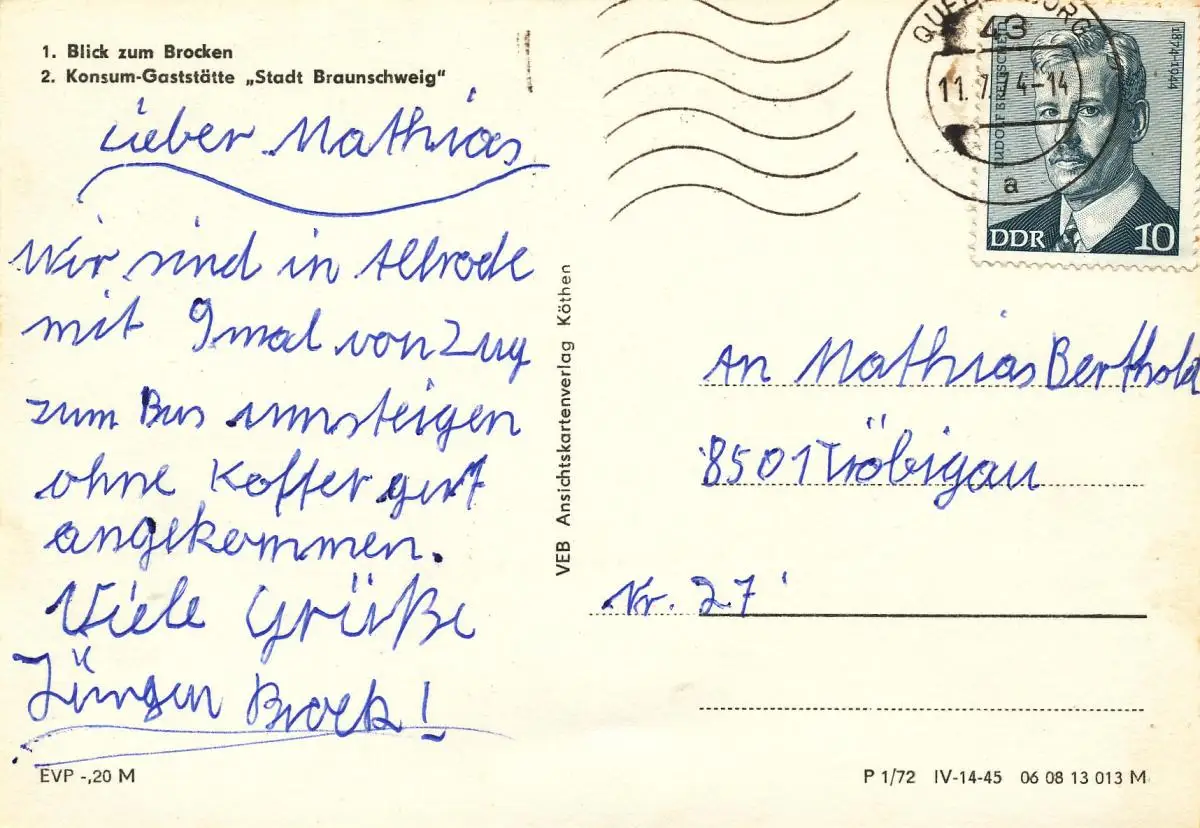 1. Blick zum Brocken
2. Konsum-Gaststätte „Stadt Braunschweig"
Lieber Mathias
Wir sind in Allrode
mit 9mal von Zug
zum Bus umsteigen
ohne Koffer gut
angekommen.
Viele Grüße
Jürgen Brock!
EVP -,20 M
VEB Ansichtskartenverlag Köthen
QUEDLINBURG
43
11.7.74-14
a
RUDOLF BREITSCHEID
1874-1944
DDR 10
An Mathias Berthold
8501 Tröbigau
Nr. 27
P 1/72 IV-14-45 06 08 13 013 M